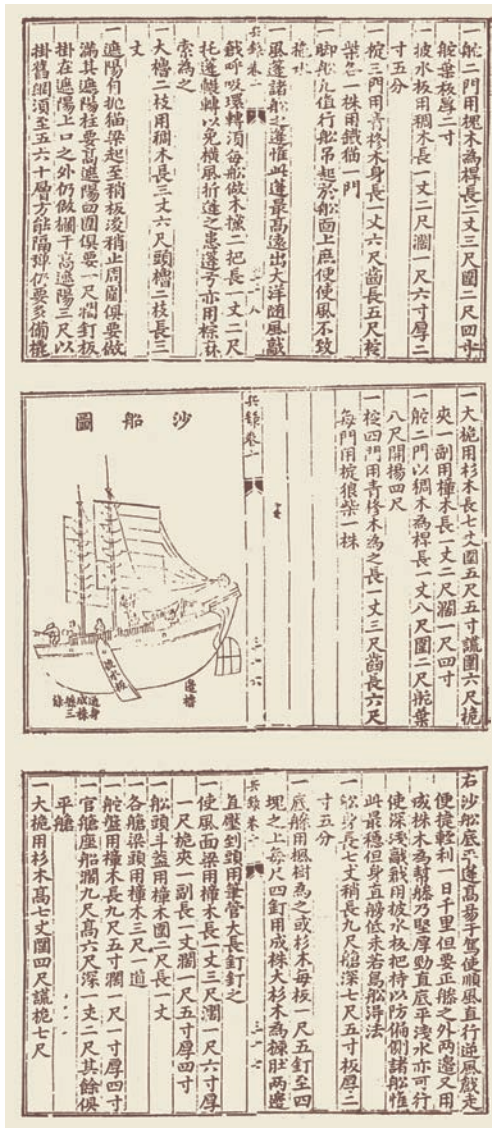 一舵二門用槐木為桿長二丈三尺圍二尺四寸
舵葉板厚二寸
一披水板用稠木長一丈二尺濶一尺六寸厚二
寸五分
一椗三門用青柊木身長一丈六尺齒長五尺椗
柴一株用鐵猫一門
一脚船凡值行船吊起於船面上庶便使風不致
拖水
一風蓬諸船之蓬惟此蓬最高遠出大洋隨風敲
兵錄卷十
戧呼吸環轉須每船做木攩二把長一丈二尺
托蓬輾轉以免橫風折蓬之患蓬弓亦用粽蔴
索為之
一大櫓二枝用稠木長三丈六尺頭櫓二枝長三
丈
一遮陽自抛猫梁起至稍板浚稍止周圍俱要做
滿其遮陽柱要高遮陽四圍俱要一尺濶釘板
掛在遮陽上口之外仍做欄干高遮陽三尺以
掛舊網須至五六十層方能隔彈仍要多備橈
一大桅用杉木長七丈圍五尺五寸謊圍六尺桅
夾一副用樟木長一丈二尺濶一尺四寸
一舵二門以稠木為桿長一丈八尺圍二尺舵葉
八尺開揚四尺
一椗四門用青柊木為之長一丈三尺齒長六尺
每門用椗狼柴一株
兵錄卷十
沙船圖
邊櫓
披水板
右沙船底平蓬高揚于駕使順風直行逆風戧走
便捷輕利一日千里但要正艌之外兩邊又用
成株木為幫艌乃堅厚勁直底平淺水亦可行
使深淺敲戧用披水板把持以防偏側諸船惟
此最穩但身直艕低未若鳥船得法
一船身長七丈稍長九尺艙深七尺五寸板厚二
寸五分
一底艌用楓樹為之或杉木每板一尺五釘至四
塊之上每尺四釘用成株大杉木為𣖕肚兩邊
兵錄卷十
直壓到頭用筆管大長釘釘之
一使風面梁用樟木長一丈三尺濶一尺六寸厚
一尺桅夾一副長一丈濶一尺五寸厚四寸
一船頭斗蓋用樟木圍二尺長一丈
一各艙梁頭用樟木三尺一道
一舵盤用樟木長九尺五寸濶一尺一寸厚四寸
一官艙座船濶九尺高六尺深一丈二尺其餘俱
平艙
一大桅用杉木高七丈圍四尺謊桅七尺